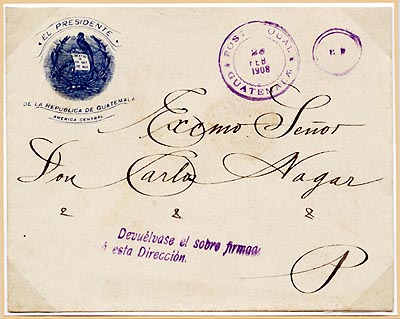 EL PRESIDENTE
DE LA REPUBLICA DE GUATEMALA
AMERICA CENTRAL
GUATEMALA
1908
Excmo Señor
Don Carlos Nagar
Devuélvase el sobre firmado
á esta Dirección.
P